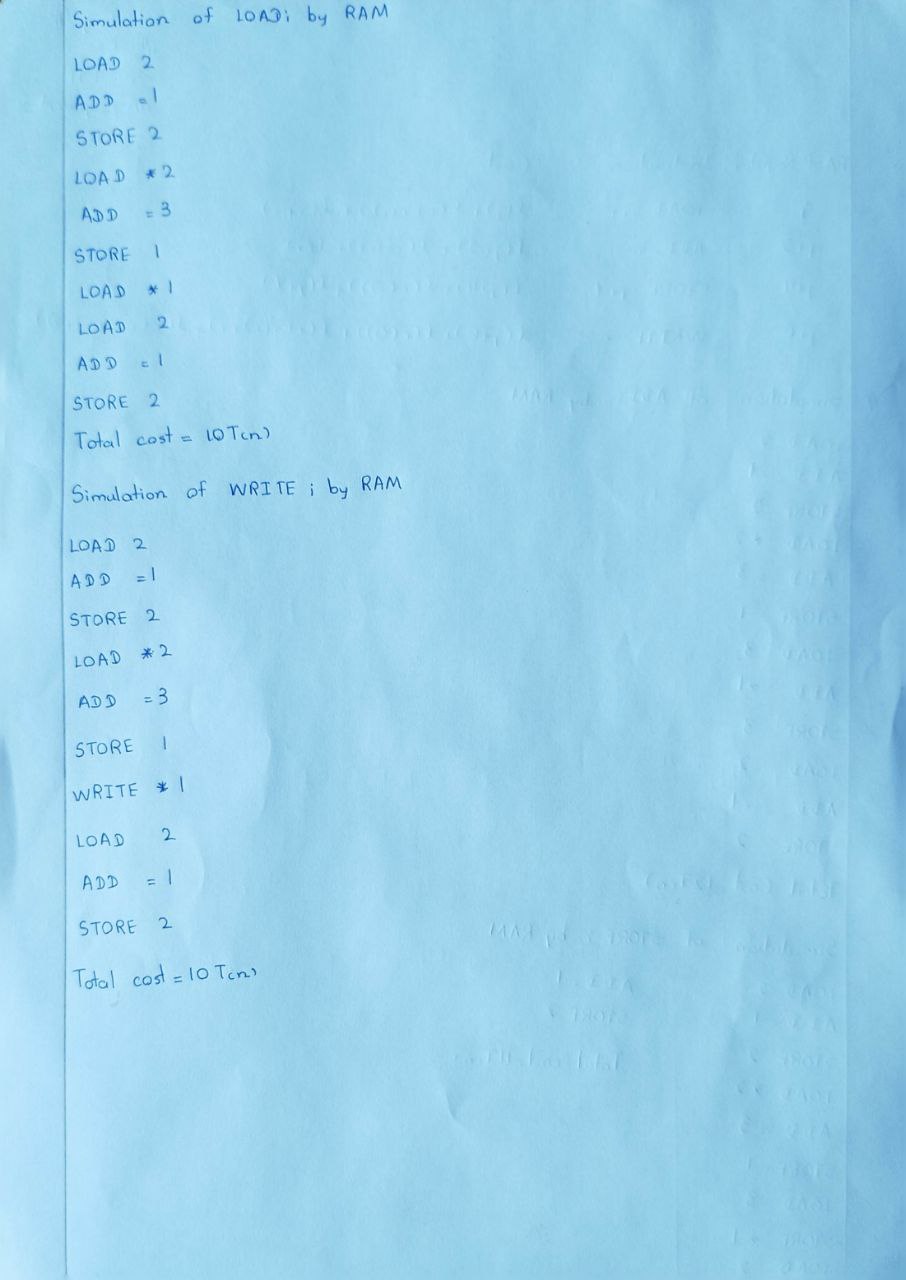 Simulation of LOADi by RAM
LOAD 2
ADD =1
STORE 2
LOAD *2
ADD =3
STORE 1
LOAD *1
LOAD 2
ADD =1
STORE 2
Total cost = 10T(n)
Simulation of WRITE i by RAM
LOAD 2
ADD =1
STORE 2
LOAD *2
ADD =3
STORE 1
WRITE *1
LOAD 2
ADD =1
STORE 2
Total cost = 10T(n)